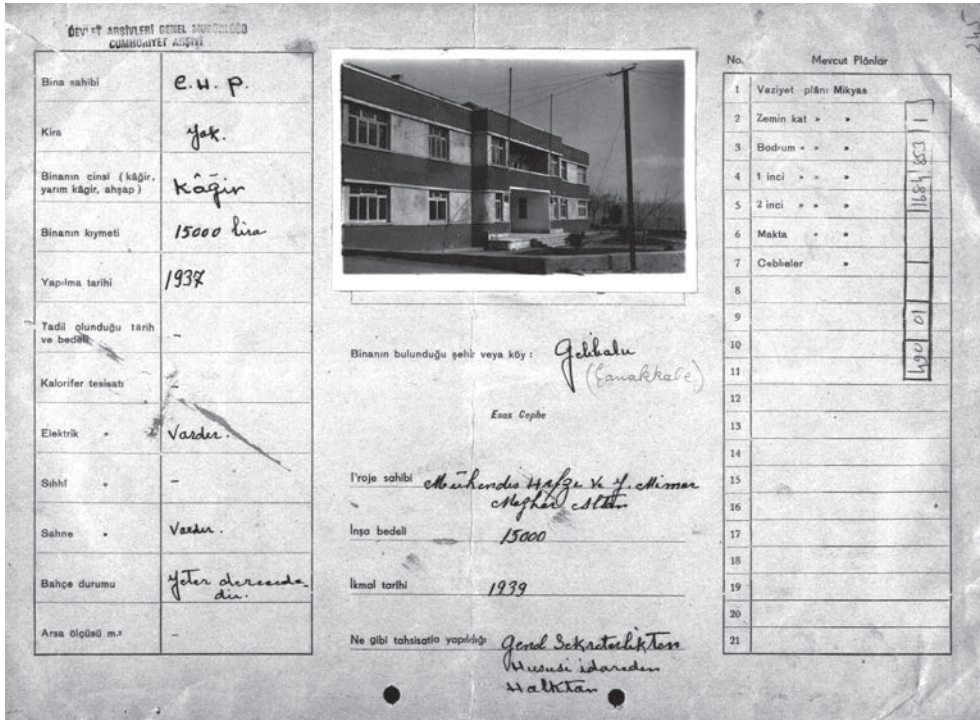 DEVLET ARŞİVLERİ GENEL MÜDÜRLÜĞÜ
CUMHURİYET ARŞİVİ
Bina sahibi C.H.P.
Kira Yok.
Binanın cinsi (kâğir, yarım kâgir, ahşap) Kâğir
Binanın kıymeti 15000 lira
Yapılma tarihi 1937
Tadil olunduğu tarih ve bedeli -
Kalorifer tesisatı -
Elektrik » Vardır.
Sıhhî » -
Sahne » Vardır.
Bahçe durumu Yeter derecede-
dir.
Arsa ölçüsü m.² -
Binanın bulunduğu şehir veya köy : Gelibolu
(Çanakkale)
Esas Cephe
Proje sahibi Mühendis ve Y. Mimar
Altan
İnşa bedeli 15000
İkmal tarihi 1939
Ne gibi tahsisatla yapıldığı Genel Sekreterlikten
Hususi idareden
Halktan
No. Mevcut Plânlar
1 Vaziyet plânı Mikyas
2 Zemin kat » »
3 Bodrum » » »
4 1 inci » » »
5 2 inci » » »
6 Makta » »
7 Cebheler »
8
9
10
11
12
13
14
15
16
17
18
19
20
21
490 01 1684 853 1